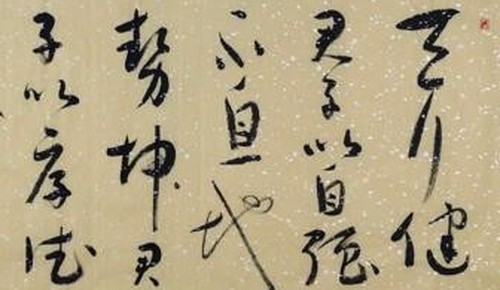 天行健
君子以自强
不息地
勢坤君
子以厚德